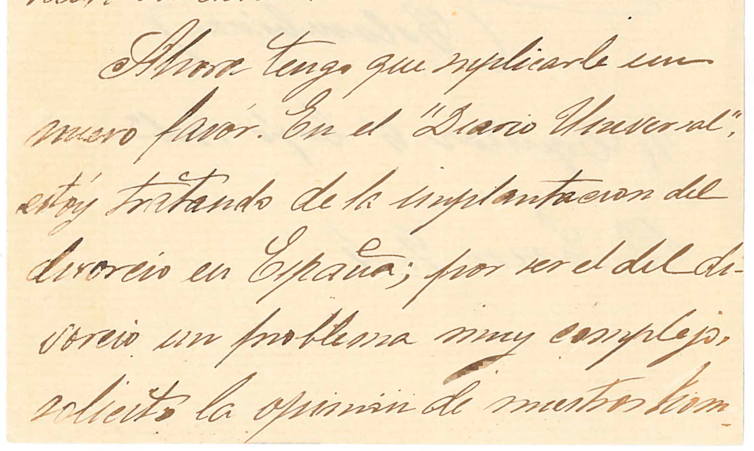 Ahora tengo que suplicarle un
nuevo favór. En el "Diario Universal",
estóy tratando de la implantacion del
divorcio en España; por ser el del di-
vorcio un problema muy complejo,
solicito la opinión de nuestros hom-